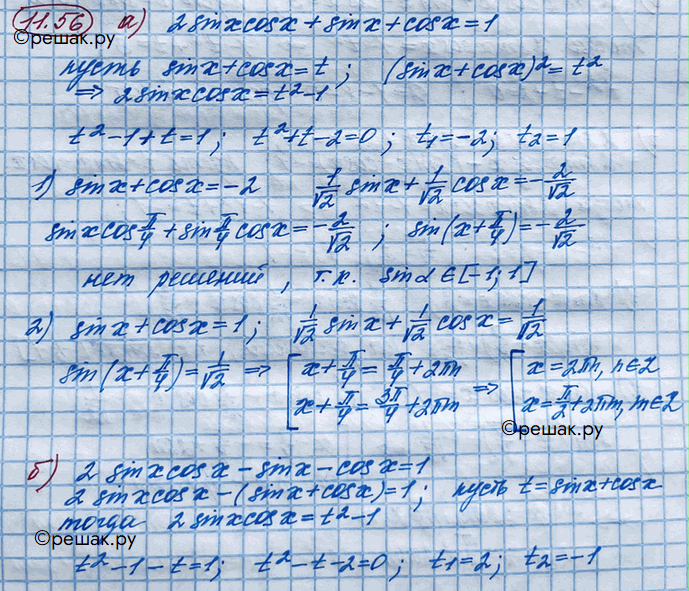 11.56 а) 2sinxcosx + sinx + cosx = 1
©решак.ру
пусть sinx + cosx = t; (sinx + cosx)² = t²
⇒ 2sinxcosx = t² - 1
t² - 1 + t = 1; t² + t - 2 = 0; t₁ = -2; t₂ = 1
1) sinx + cosx = -2 1/√2 sinx + 1/√2 cosx = -2/√2
sinxcos π/4 + sin π/4 cosx = -2/√2; sin(x + π/4) = -2/√2
нет решений, т.к. sinα ∈ [-1; 1]
2) sinx + cosx = 1; 1/√2 sinx + 1/√2 cosx = 1/√2
sin(x + π/4) = 1/√2 ⇒ [ x + π/4 = π/4 + 2πn ⇒ [ x = 2πn, n∈Z
x + π/4 = 3π/4 + 2πm x = π/2 + 2πm, m∈Z
©решак.ру
б) 2 sinxcosx - sinx - cosx = 1
2 sinxcosx - (sinx + cosx) = 1; пусть t = sinx + cosx
тогда 2 sinxcosx = t² - 1
©решак.ру
t² - 1 - t = 1; t² - t - 2 = 0; t₁ = 2; t₂ = -1